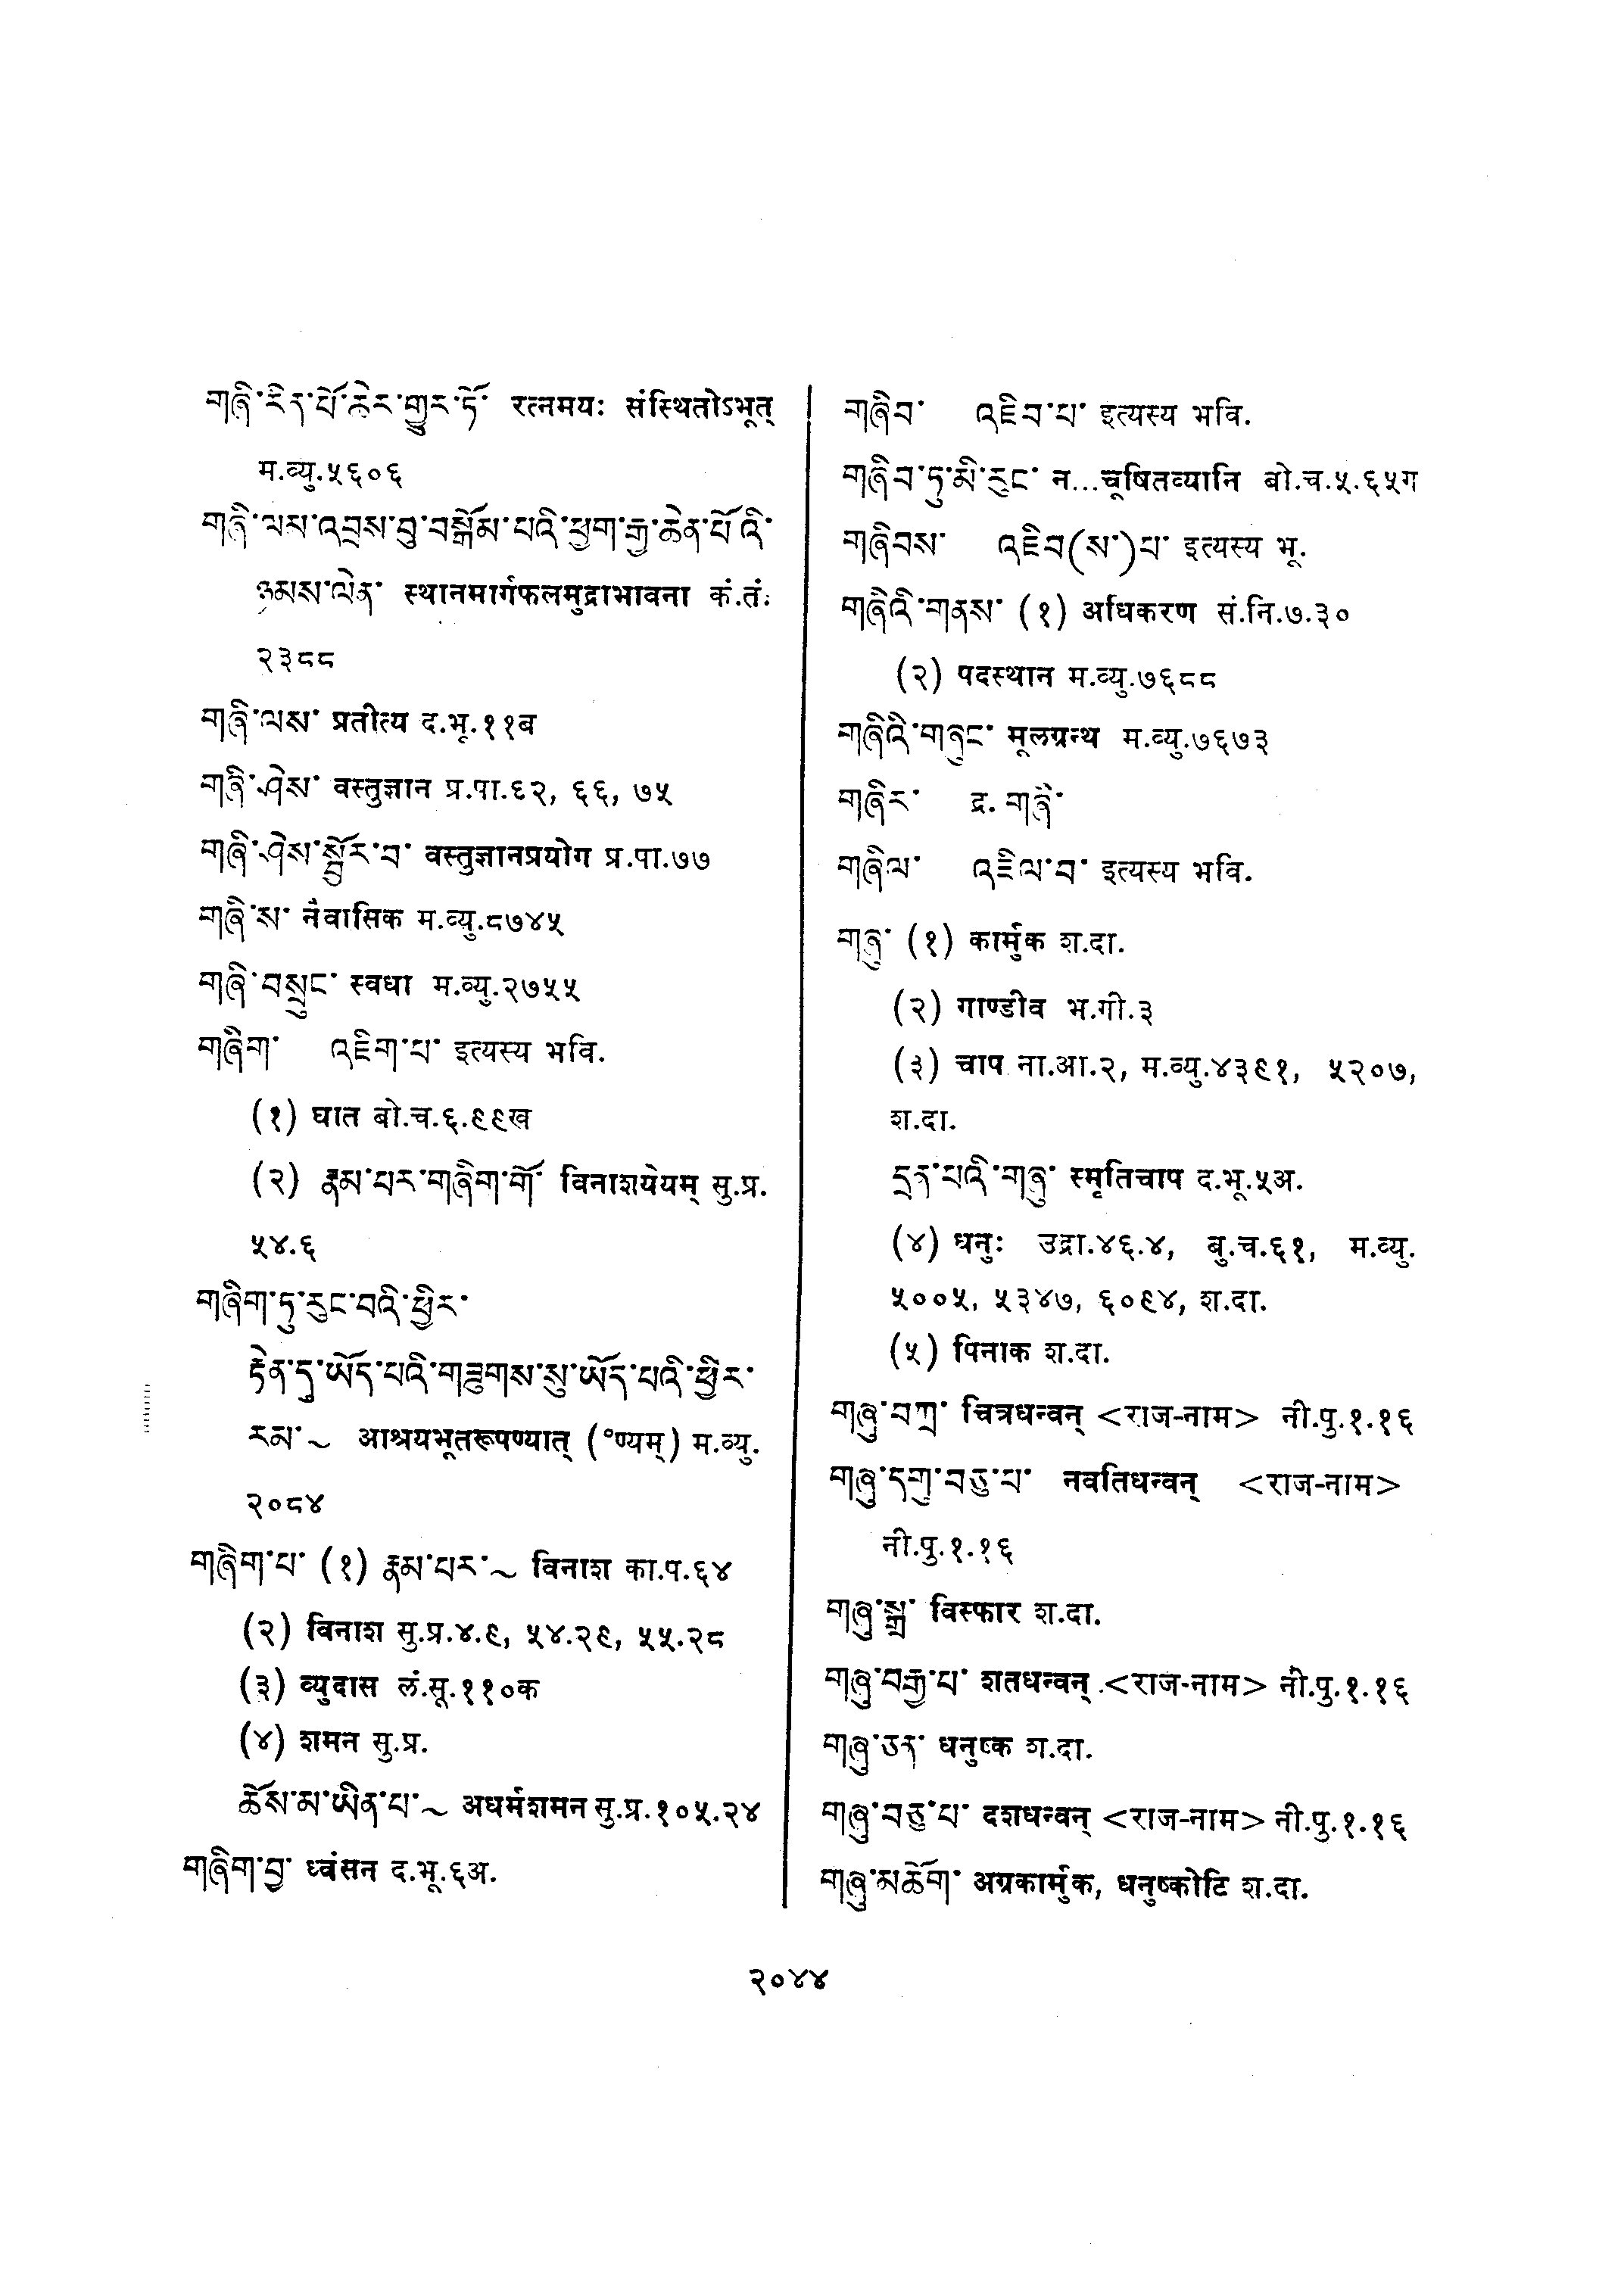 གཞི་རིན་པོ་ཆེར་གྱུར་ཏོ་ रत्नमयः संस्थितोऽभूत्
म.व्यु.५६०६
གཞི་ལས་འབྲས་བུ་བསྒོམ་པའི་ཕྱག་རྒྱ་ཆེན་པོ་འི་
ཉམས་ལེན་ स्थानमार्गफलमुद्राभावना कं.तं.
२३८८
གཞི་ལས་ प्रतीत्य द.भू.११ब
གཞི་ཤེས་ वस्तुज्ञान प्र.पा.६२, ६६, ७५
གཞི་ཤེས་སྦྱོར་བ་ वस्तुज्ञानप्रयोग प्र.पा.७७
གཞི་ས་ नैवासिक म.व्यु.८७४५
གཞི་བསྲུང་ स्वधा म.व्यु.२७५५
གཞིག་ འཇིག་པ་ इत्यस्य भवि.
(१) घात बो.च.६.९९ख
(२) རྣམ་པར་གཞིག་གོ་ विनाशयेयम् सु.प्र.
५४.६
གཞིག་ཏུ་རུང་བའི་ཕྱིར་
རྟེན་དུ་ཡོད་པའི་གཟུགས་སུ་ཡོད་པའི་ཕྱིར་
རམ་~ आश्रयभूतरूपण्यात् (°ण्यम्) म.व्यु.
२०८४
གཞིག་པ་ (१) རྣམ་པར་~ विनाश का.प.६४
(२) विनाश सु.प्र.४.९, ५४.२९, ५५.२८
(३) व्युदास लं.सू.११०क
(४) शमन सु.प्र.
ཆོས་མ་ཡིན་པ་~ अधर्मशमन सु.प्र.१०५.२४
གཞིག་བྱ་ ध्वंसन द.भू.६अ.
གཞིབ་ འཇིབ་པ་ इत्यस्य भवि.
གཞིབ་ཏུ་མི་རུང་ न...चूषितव्यानि बो.च.५.६५ग
གཞིབས་ འཇིབ(ས་)པ་ इत्यस्य भू.
གཞིའི་གནས་ (१) अधिकरण सं.नि.७.३०
(२) पदस्थान म.व्यु.७६८८
གཞིའི་གཞུང་ मूलग्रन्थ म.व्यु.७६७३
གཞིར་ द्र. གཞི་
གཞིལ་ འཇིལ་བ་ इत्यस्य भवि.
གཞུ་ (१) कार्मुक श.दा.
(२) गाण्डीव भ.गी.३
(३) चाप ना.आ.२, म.व्यु.४३९१, ५२०७,
श.दा.
དྲན་པའི་གཞུ་ स्मृतिचाप द.भू.५अ.
(४) धनुः उद्रा.४६.४, बु.च.६१, म.व्यु.
५००५, ५३४७, ६०९४, श.दा.
(५) पिनाक श.दा.
གཞུ་བཀྲ་ चित्रधन्वन् <राज-नाम> नी.पु.१.१६
གཞུ་དགུ་བཅུ་པ་ नवतिधन्वन् <राज-नाम>
नी.पु.१.१६
གཞུ་སྒྲ་ विस्फार श.दा.
གཞུ་བརྒྱ་པ་ शतधन्वन् <राज-नाम> नी.पु.१.१६
གཞུ་ཅན་ धनुष्क श.दा.
གཞུ་བཅུ་པ་ दशधन्वन् <राज-नाम> नी.पु.१.१६
གཞུ་མཆོག་ अग्रकार्मुक, धनुष्कोटि श.दा.
२०४४